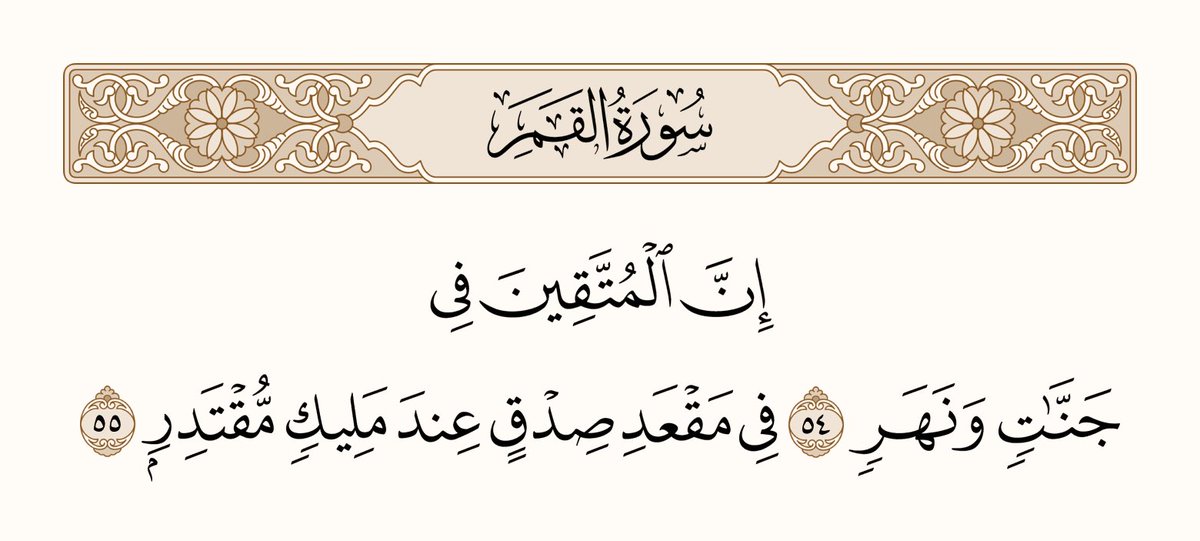 سُورَةُ القَمَرِ
إِنَّ ٱلۡمُتَّقِينَ فِي
جَنَّٰتٖ وَنَهَرٖ ٥٤ فِي مَقۡعَدِ صِدۡقٍ عِندَ مَلِيكٖ مُّقۡتَدِرِۭ ٥٥